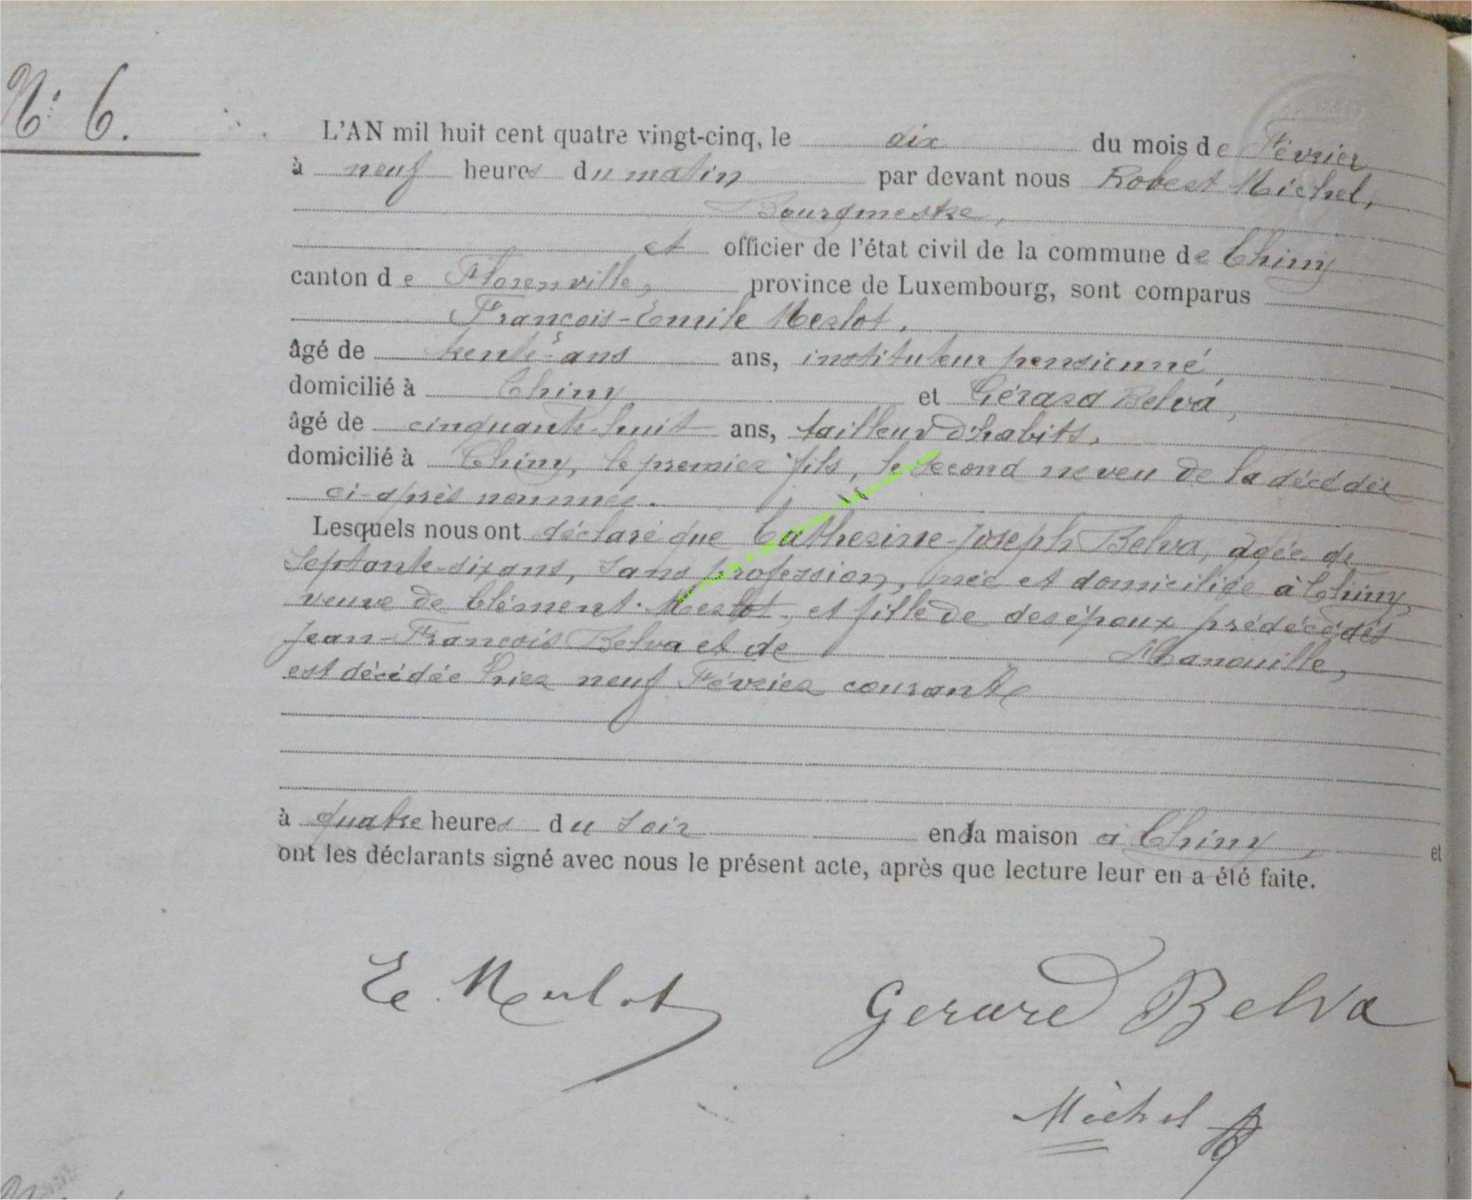 N° 6.
L'AN mil huit cent quatre vingt-cinq, le dix du mois de Février
à neuf heures du matin par devant nous Robert Michel,
Bourgmestre,
et officier de l'état civil de la commune de Chiny
canton de Florenville, province de Luxembourg, sont comparus
François-Emile Merlot,
âgé de trente ans ans, instituteur pensionné,
domicilié à Chiny et Gérard Belva,
âgé de cinquante-huit ans, tailleur d'habits,
domicilié à Chiny, le premier fils, le second neveu de la décédée
ci-après nommée.
Lesquels nous ont déclaré que Catherine-Joseph Belva, âgée de
septante-six ans, sans profession, née et domiciliée à Chiny,
veuve de Clément Merlot, et fille de des époux prédécédés
Jean-François Belva et de Manouille,
est décédée hier neuf Février courant
à quatre heures du soir en la maison à Chiny, et
ont les déclarants signé avec nous le présent acte, après que lecture leur en a été faite.
E. Merlot Gerard Belva
Michel R